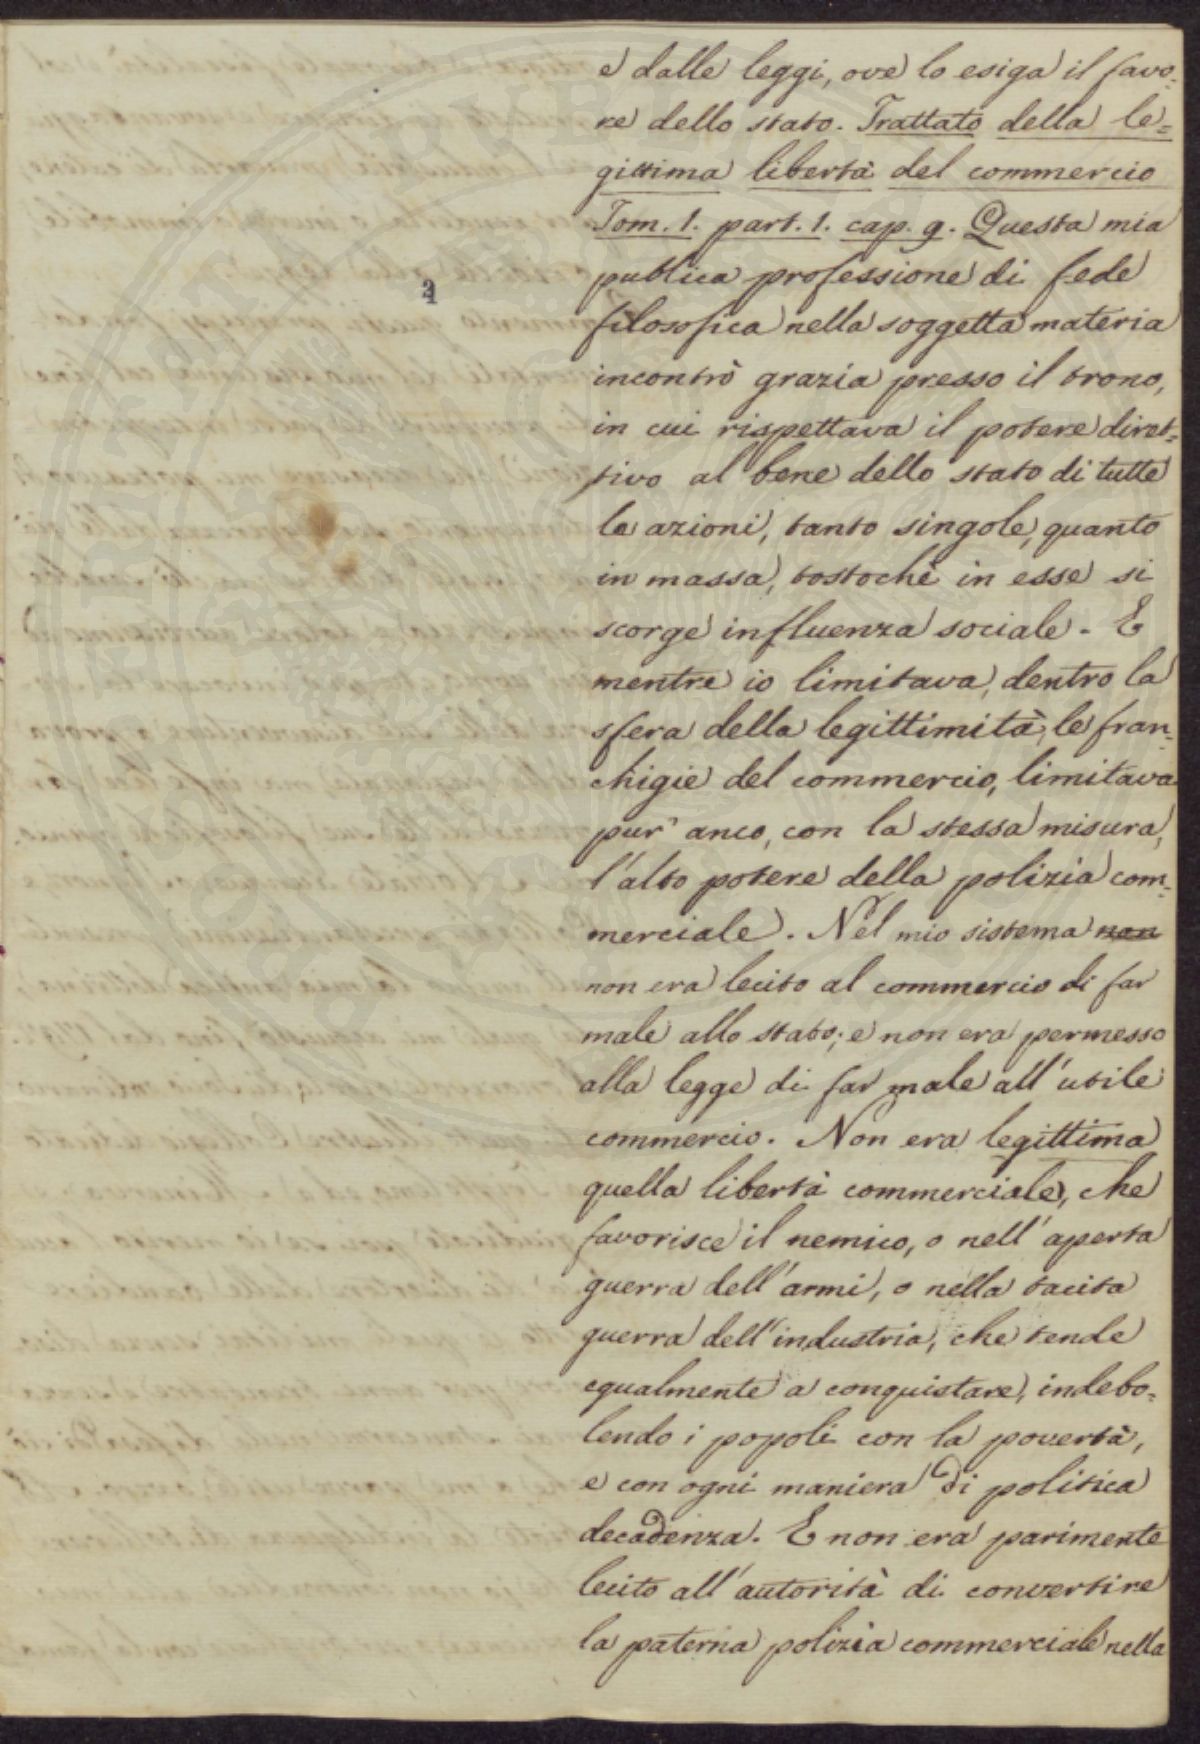 e dalle leggi, ove lo esiga il favo-
re dello stato. Trattato della le=
gittima libertà del commercio
Tom. 1. part. 1. cap. 9. Questa mia
publica professione di fede
filosofica nella soggetta materia
incontrò grazia presso il trono,
in cui rispettava il potere diret-
tivo al bene dello stato di tutte
le azioni, tanto singole, quanto
in massa, tostochè in esse si
scorge influenza sociale. E
mentre io limitava, dentro la
sfera della legittimità, le fran-
chigie del commercio, limitava
pur' anco, con la stessa misura,
l'alto potere della polizia com-
merciale. Nel mio sistema non
non era lecito al commercio di far
male allo stato; e non era permesso
alla legge di far male all'utile
commercio. Non era legittima
quella libertà commerciale, che
favorisce il nemico, o nell'aperta
guerra dell'armi, o nella tacita
guerra dell'industria, che tende
egualmente a conquistare, indebo-
lendo i popoli con la povertà,
e con ogni maniera di politica
decadenza. E non era parimente
lecito all'autorità di convertire
la paterna polizia commerciale nella